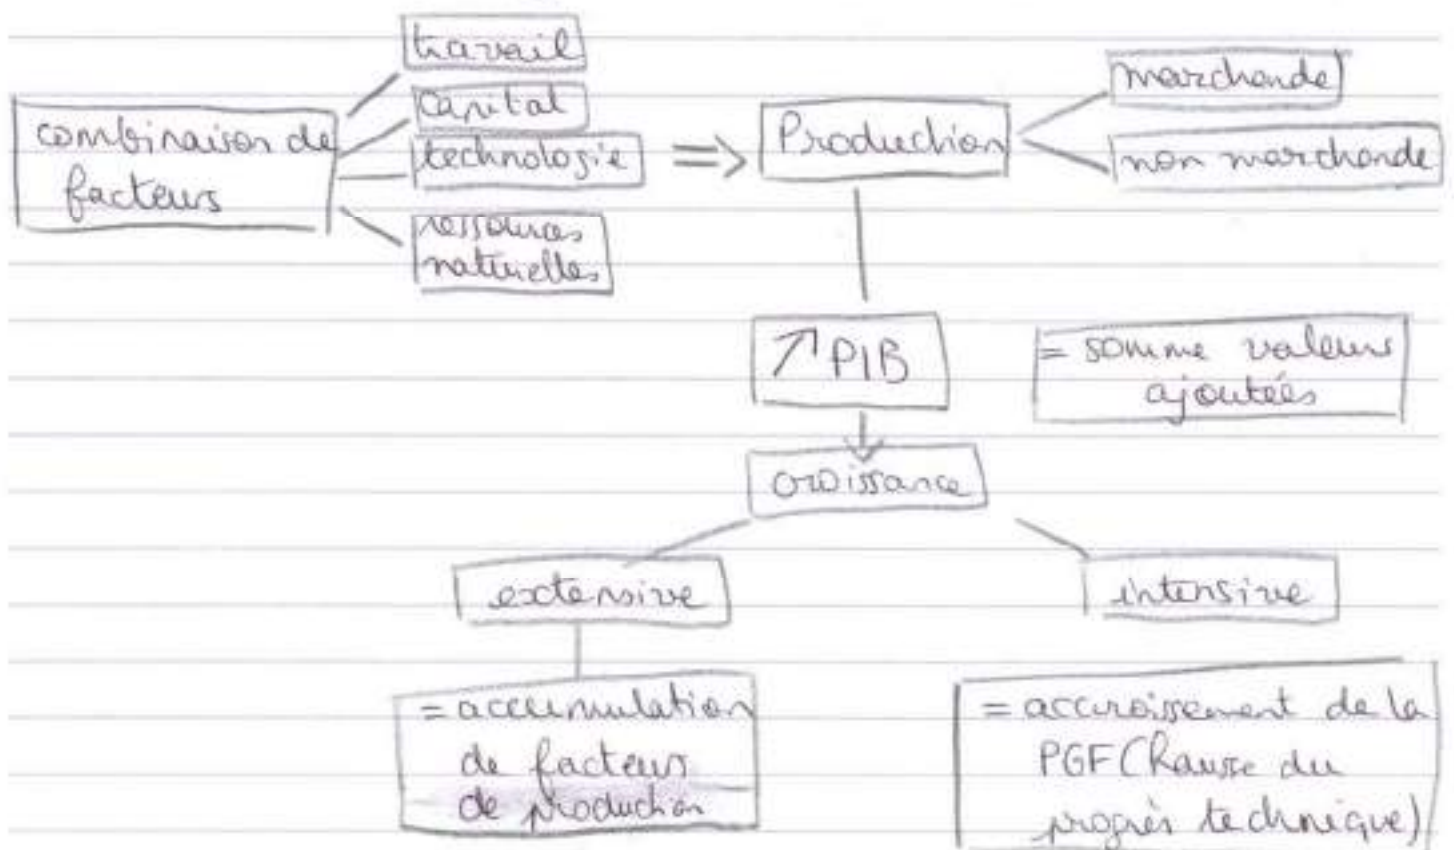 travail
capital
technologie
ressources
naturelles
combinaison de
facteurs
=> Production
marchande
non marchande
↗ PIB
= somme valeurs
ajoutées
croissance
extensive
intensive
= accumulation
de facteurs
de production
= accroissement de la
PGF (hausse du
progrès technique)